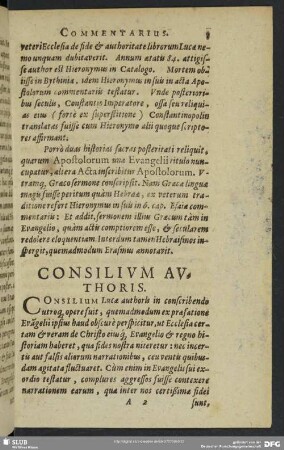 COMMENTARIUS.
veteri Ecclesia de fide & authoritate librorum Luca ne-
mo unquam dubitaverit. Annum ætatis 84. attigis-
se author est Hieronymus in Catalogo. Mortem obi-
isse in Bythinia. idem Hieronymus in suis in acta Apo-
stolorum commentariis testatur. Unde posterioribus
seculis, Constantio Imperatore, ossa seu reliqui-
as eius (forte ex superstitione) Constantinopolin
translatas fuisse cum Hieronymo alii quoque scripto-
res affirmant.
Porrò duas historias sacras posteritati reliquit,
quarum Apostolorum una Evangelii titulo nun-
cupatur, altera Acta inscribitur Apostolorum. V-
tramq; Græco sermone conscripsit. Nam Græca lingua
magis fuisse peritum quàm Hebraæ, ex veterum tra-
ditione refert Hieronymus in suis in 6. cap. Esaiæ com-
mentariis: Et addit. sermonem illius Græcum tàm in
Evangelio, quàm actis comptiorem esse, & secularem
redolere eloquentiam. Interdum tamen Hebraismos in-
spergit, quemadmodum Erasmus annotavit.
CONSILIVM AV-
THORIS.
CONSILIUM Lucæ authoris in conscribendo
utroq; opere fuit, quemadmodum ex præfatione
Evãgelii ipsius haud obscurè perspicitur, ut Ecclesia cer-
tam & veram de Christo eiusq; Evangelio & regno hi-
storiam haberet, qua fides nostra niteretur: nec incer-
tis aut falsis aliorum narrationibus, ceu ventis quibus-
dam agitata fluctuaret. Cum enim in Evangelii sui ex-
ordio testatur, complures aggressos fuisse contexere
narrationem earum, quæ inter nos certissimæ fidei
A 2
sunt,
SLUB
Wir führen Wissen.
DFG